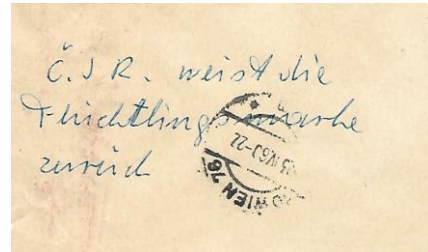 Č.S.R. weist die
Flüchtlingsmarke
zurück
WIEN 76